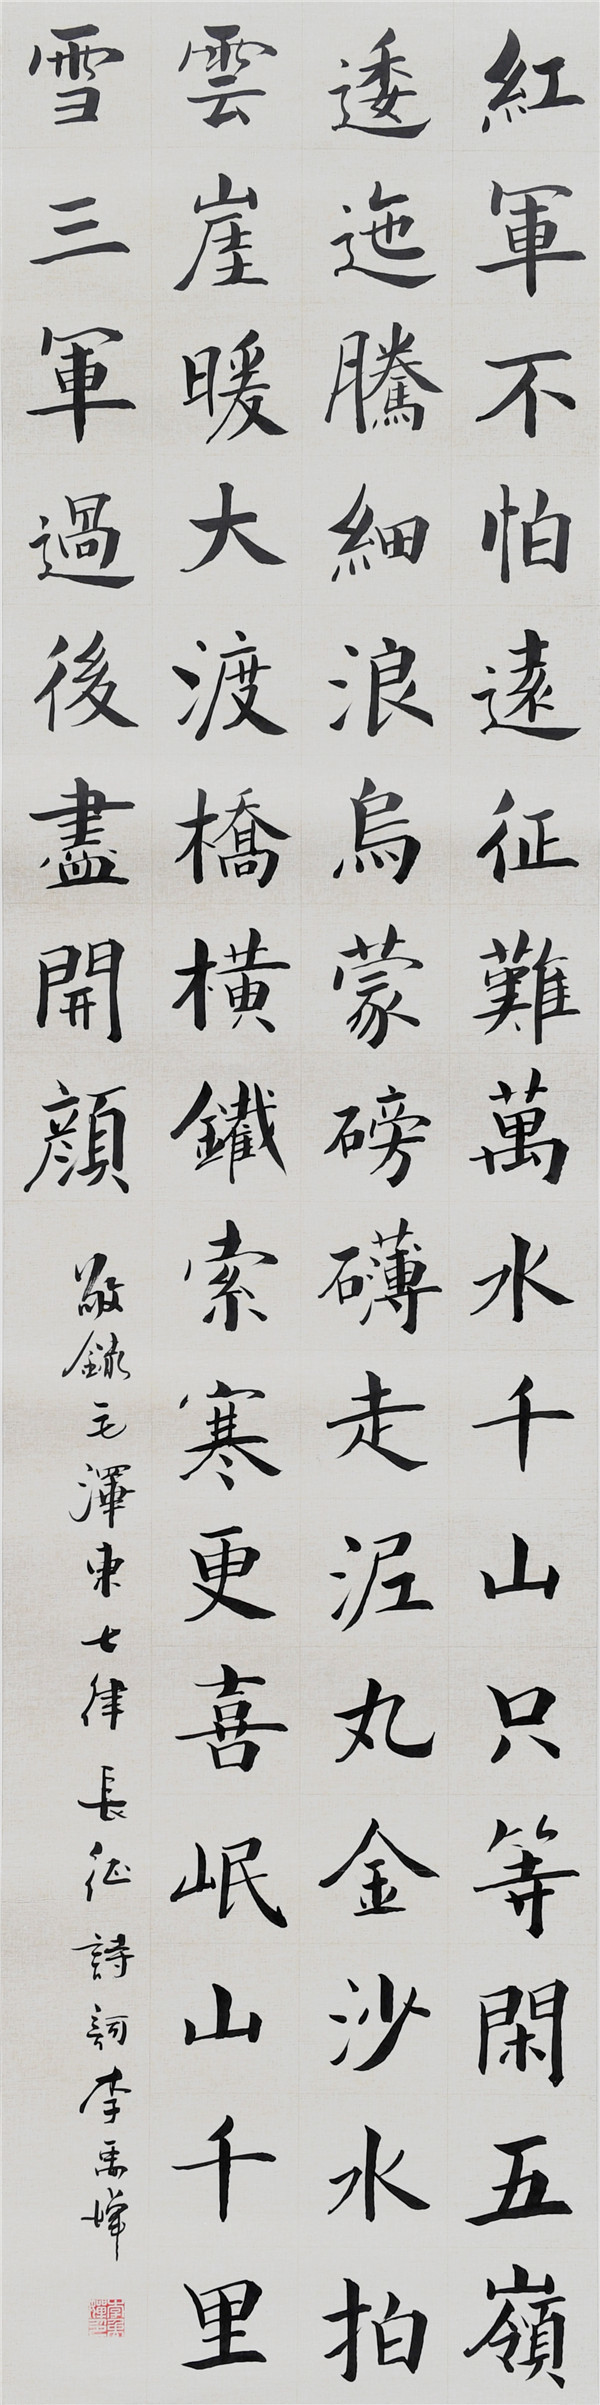 紅軍不怕遠征難萬水千山只等閑五嶺
逶迤騰細浪烏蒙磅礴走泥丸金沙水拍
雲崖暖大渡橋橫鐵索寒更喜岷山千里
雪三軍過後盡開顏
敬錄毛澤東七律長征詩詞李禹